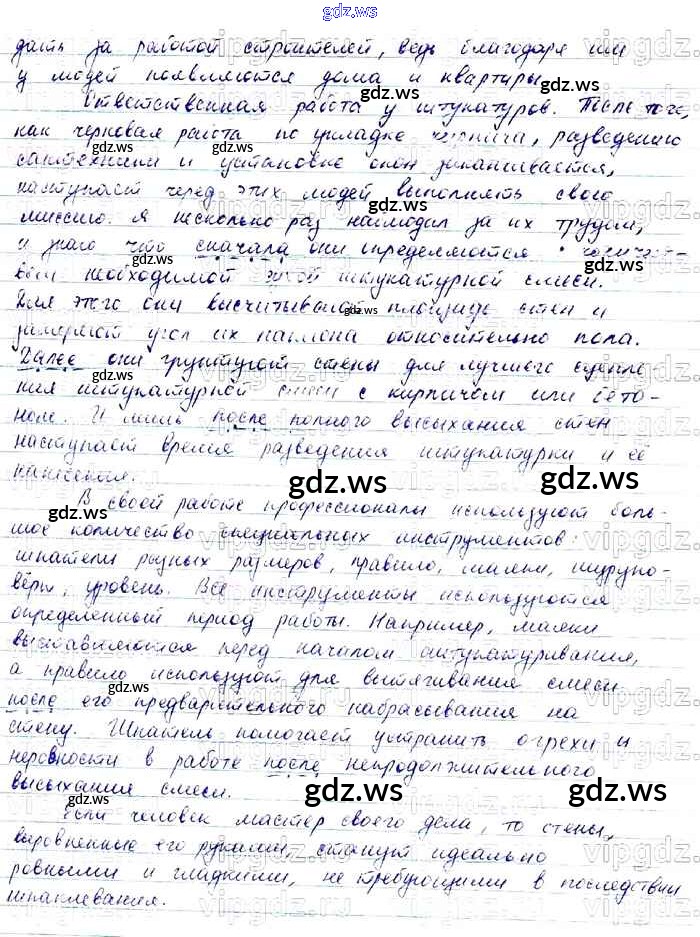 gdz.ws
дать за работой строителей, ведь благодаря им
у людей появляются дома и квартиры.
Ответственная работа у штукатуров. После того,
как черновая работа по укладке кирпича, разведению
сантехники и установке окон заканчивается,
наступает черед этих людей выполнять свою
миссию. Я несколько раз наблюдал за их трудом,
и знаю что сначала они определяются с количест-
вом необходимой сухой штукатурной смеси.
Для этого они высчитывают площадь стен и
замеряют угол их наклона относительно пола.
Далее они грунтуют стены для лучшего сцепле
ния штукатурной смеси с кирпичом или бето-
ном. И лишь после полного высыхания стен
наступает время разведения штукатурки и её
нанесения.
В своей работе профессионалы используют боль-
шое количество специальных инструментов:
шпатели разных размеров, правило, маяки, шурупо-
вёрт, уровень. Все инструменты используются
определенный период работы. Например, маяки
выставляются перед началом штукатуривания,
а правило используют для вытягивания смеси
после его предварительного набрасывания на
стену. Шпатель помогает устранить огрехи и
неровности в работе после непродолжительного
высыхания смеси.
Если человек мастер своего дела, то стены,
выровненные его руками, станут идеально
ровными и гладкими, не требующими в последствии
шпаклевания.